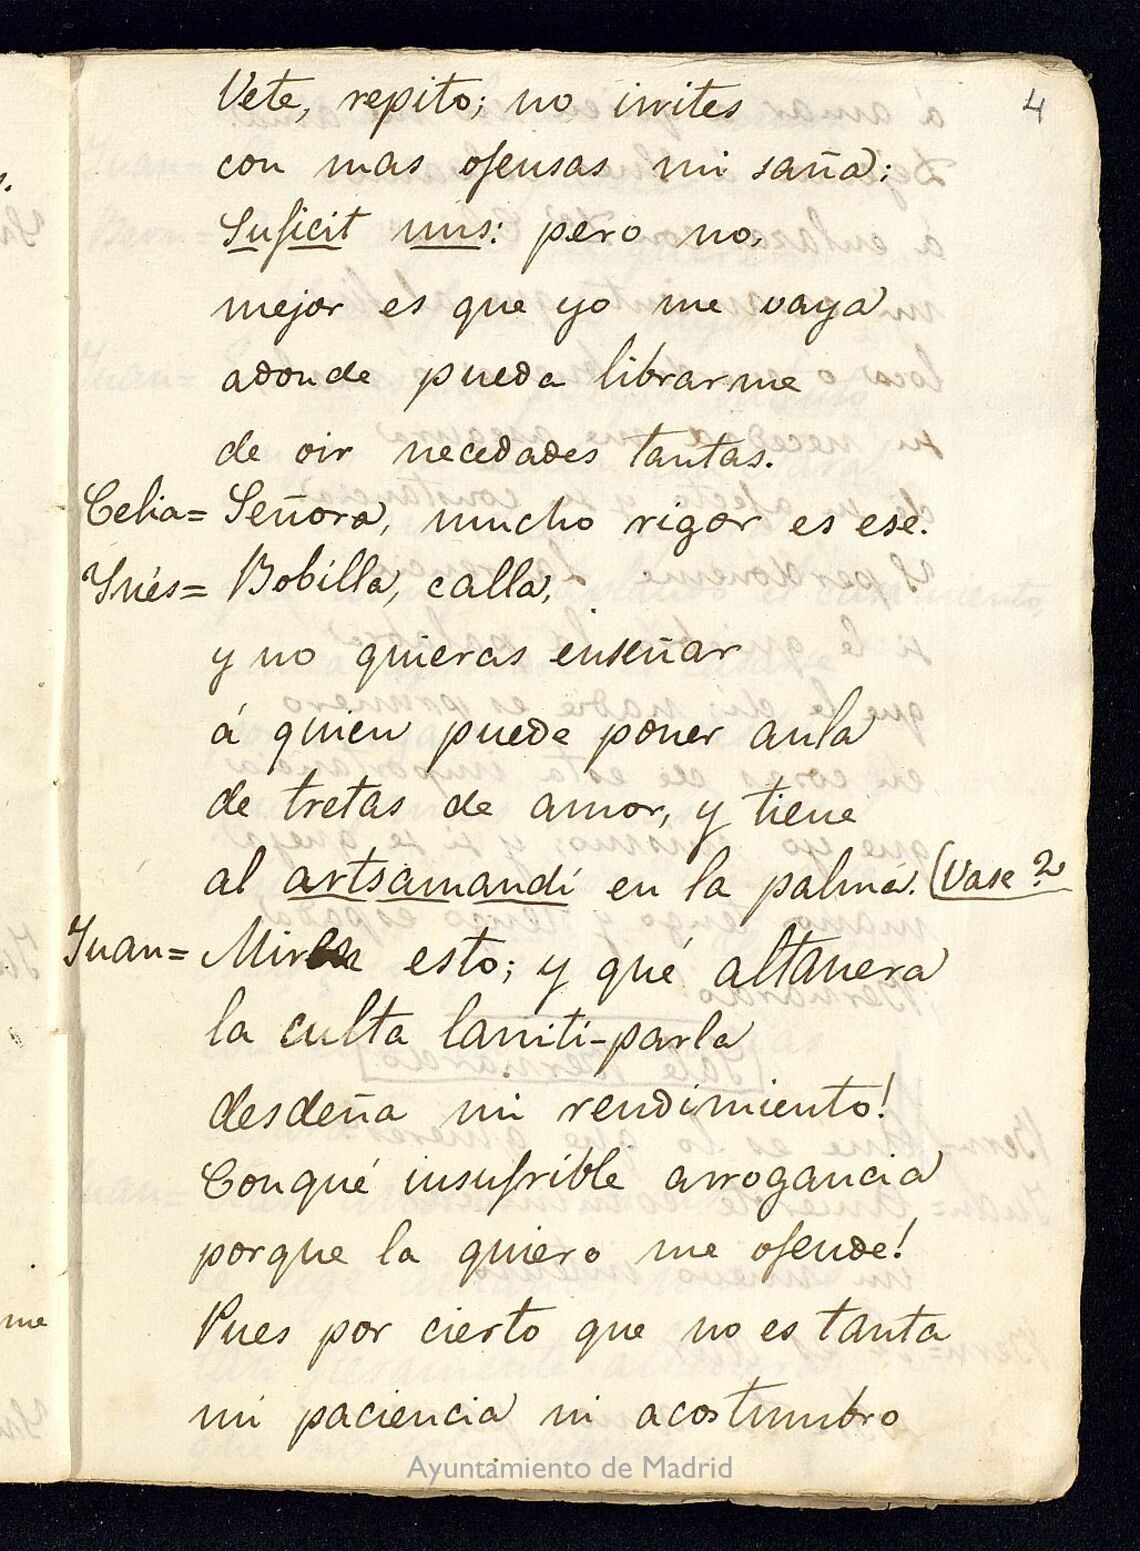 4
Vete, repito; no irrites
con mas ofensas mi saña;
Suficit unus: pero no,
mejor es que yo me vaya
adonde pueda librarme
de oir necedades tantas.
Celia= Señora, mucho rigor es ese.
Ynés= Bobilla, calla,
y no quieras enseñar
á quien puede poner aula
de tretas de amor, y tiene
al artsamandi en la palma. (Vase
Juan= Miren esto; y qué altanera
la culta laniti-parla
desdeña mi rendimiento!
Conqué insufrible arrogancia
porque la quiero me ofende!
Pues por cierto que no es tanta
mi paciencia ni acostumbro
Ayuntamiento de Madrid